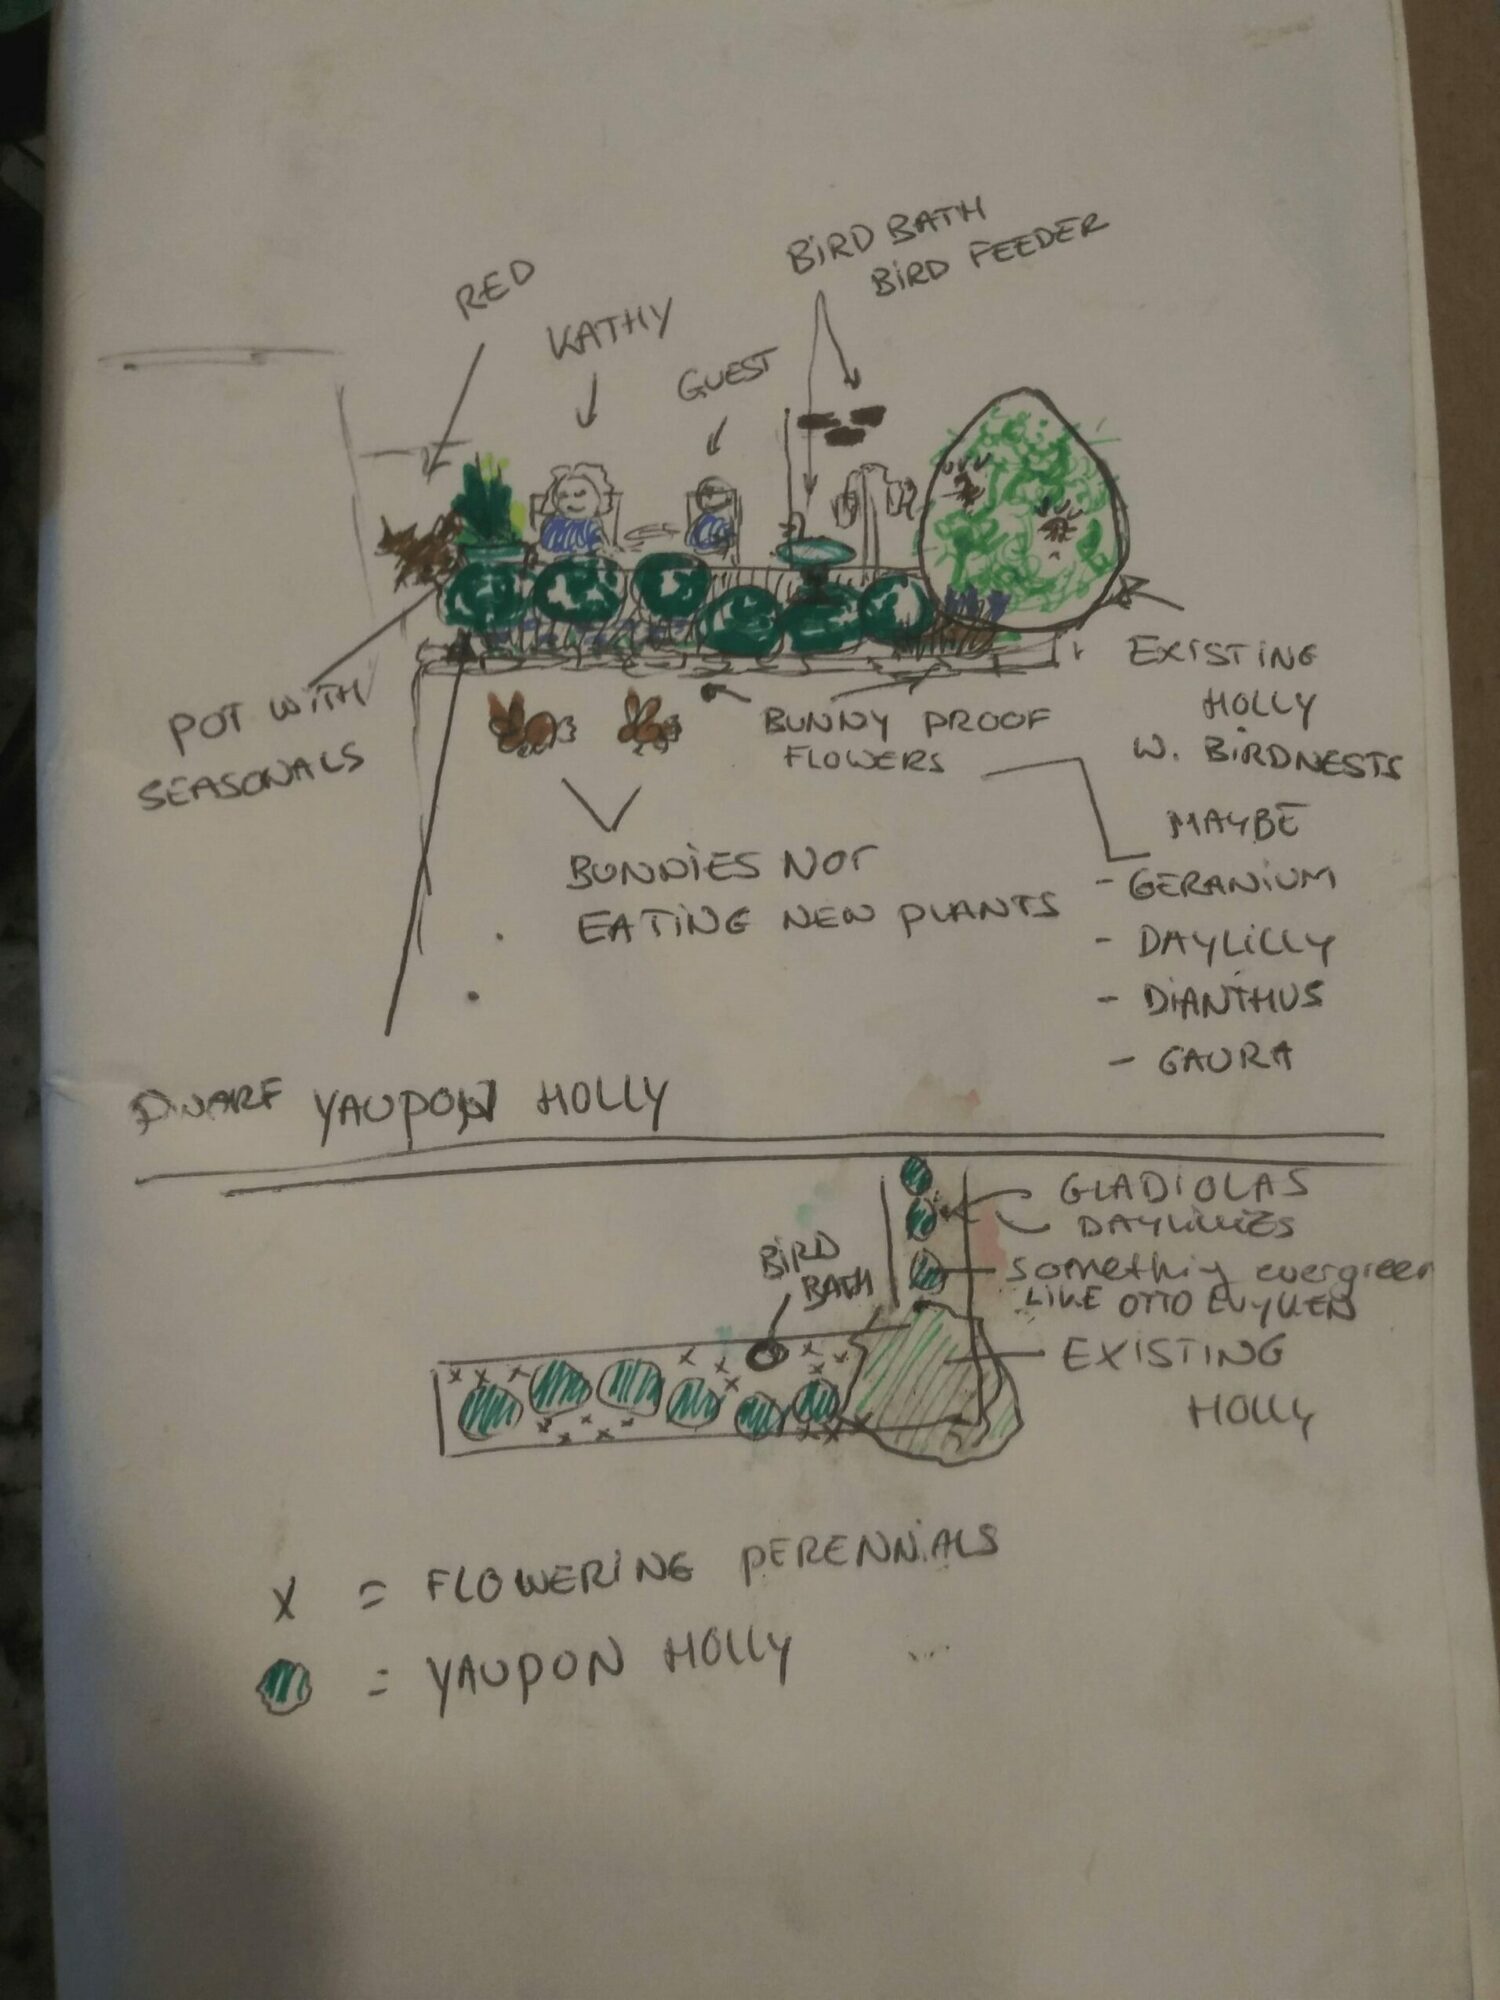 RED
KATHY
GUEST
BIRD BATH
BIRD FEEDER
POT WITH
SEASONALS
BUNNY PROOF
FLOWERS
EXISTING
HOLLY
W. BIRDNESTS
BUNNIES NOT
EATING NEW PLANTS
MAYBE
- GERANIUM
- DAYLILLY
- DIANTHUS
- GAURA
DWARF YAUPON HOLLY
GLADIOLAS
DAYLILIES
BIRD
BATH
Something evergreen
LIKE OTTO LUYKEN
EXISTING
HOLLY
X = FLOWERING PERENNIALS
= YAUPON HOLLY